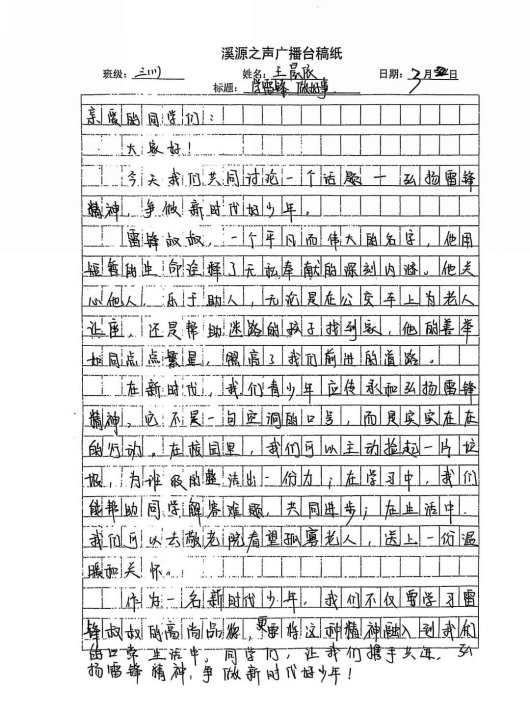 溪源之声广播台稿纸
班级: 三(1) 姓名: 王晨 日期: 3月 日
标题: 学雷锋 做好事
亲爱的同学们:
大家好!
今天我们共同讨论一个话题一弘扬雷锋
精神,争做新时代好少年。
雷锋叔叔,一个平凡而伟大的名字,他用
短暂的生命诠释了无私奉献的深刻内涵。他关
心他人,乐于助人,无论是在公交车上为老人
让座,还是帮助迷路的孩子找到家,他的善举
如同点点繁星,照亮了我们前进的道路。
在新时代,我们青少年应传承和弘扬雷锋
精神。它不是一句空洞的口号,而是实实在在
的行动。在校园里,我们可以主动捡起一片垃
圾,为班级的整洁出一份力;在学习中,我们
能帮助同学解答难题,共同进步;在生活中,
我们可以去敬老院看望孤寡老人,送上一份温
暖和关怀。
作为一名新时代少年,我们不仅要学习雷
锋叔叔的高尚品格,更需将这种精神融入到我们
的日常生活中。同学们,让我们携手共进,弘
扬雷锋精神,争做新时代好少年!